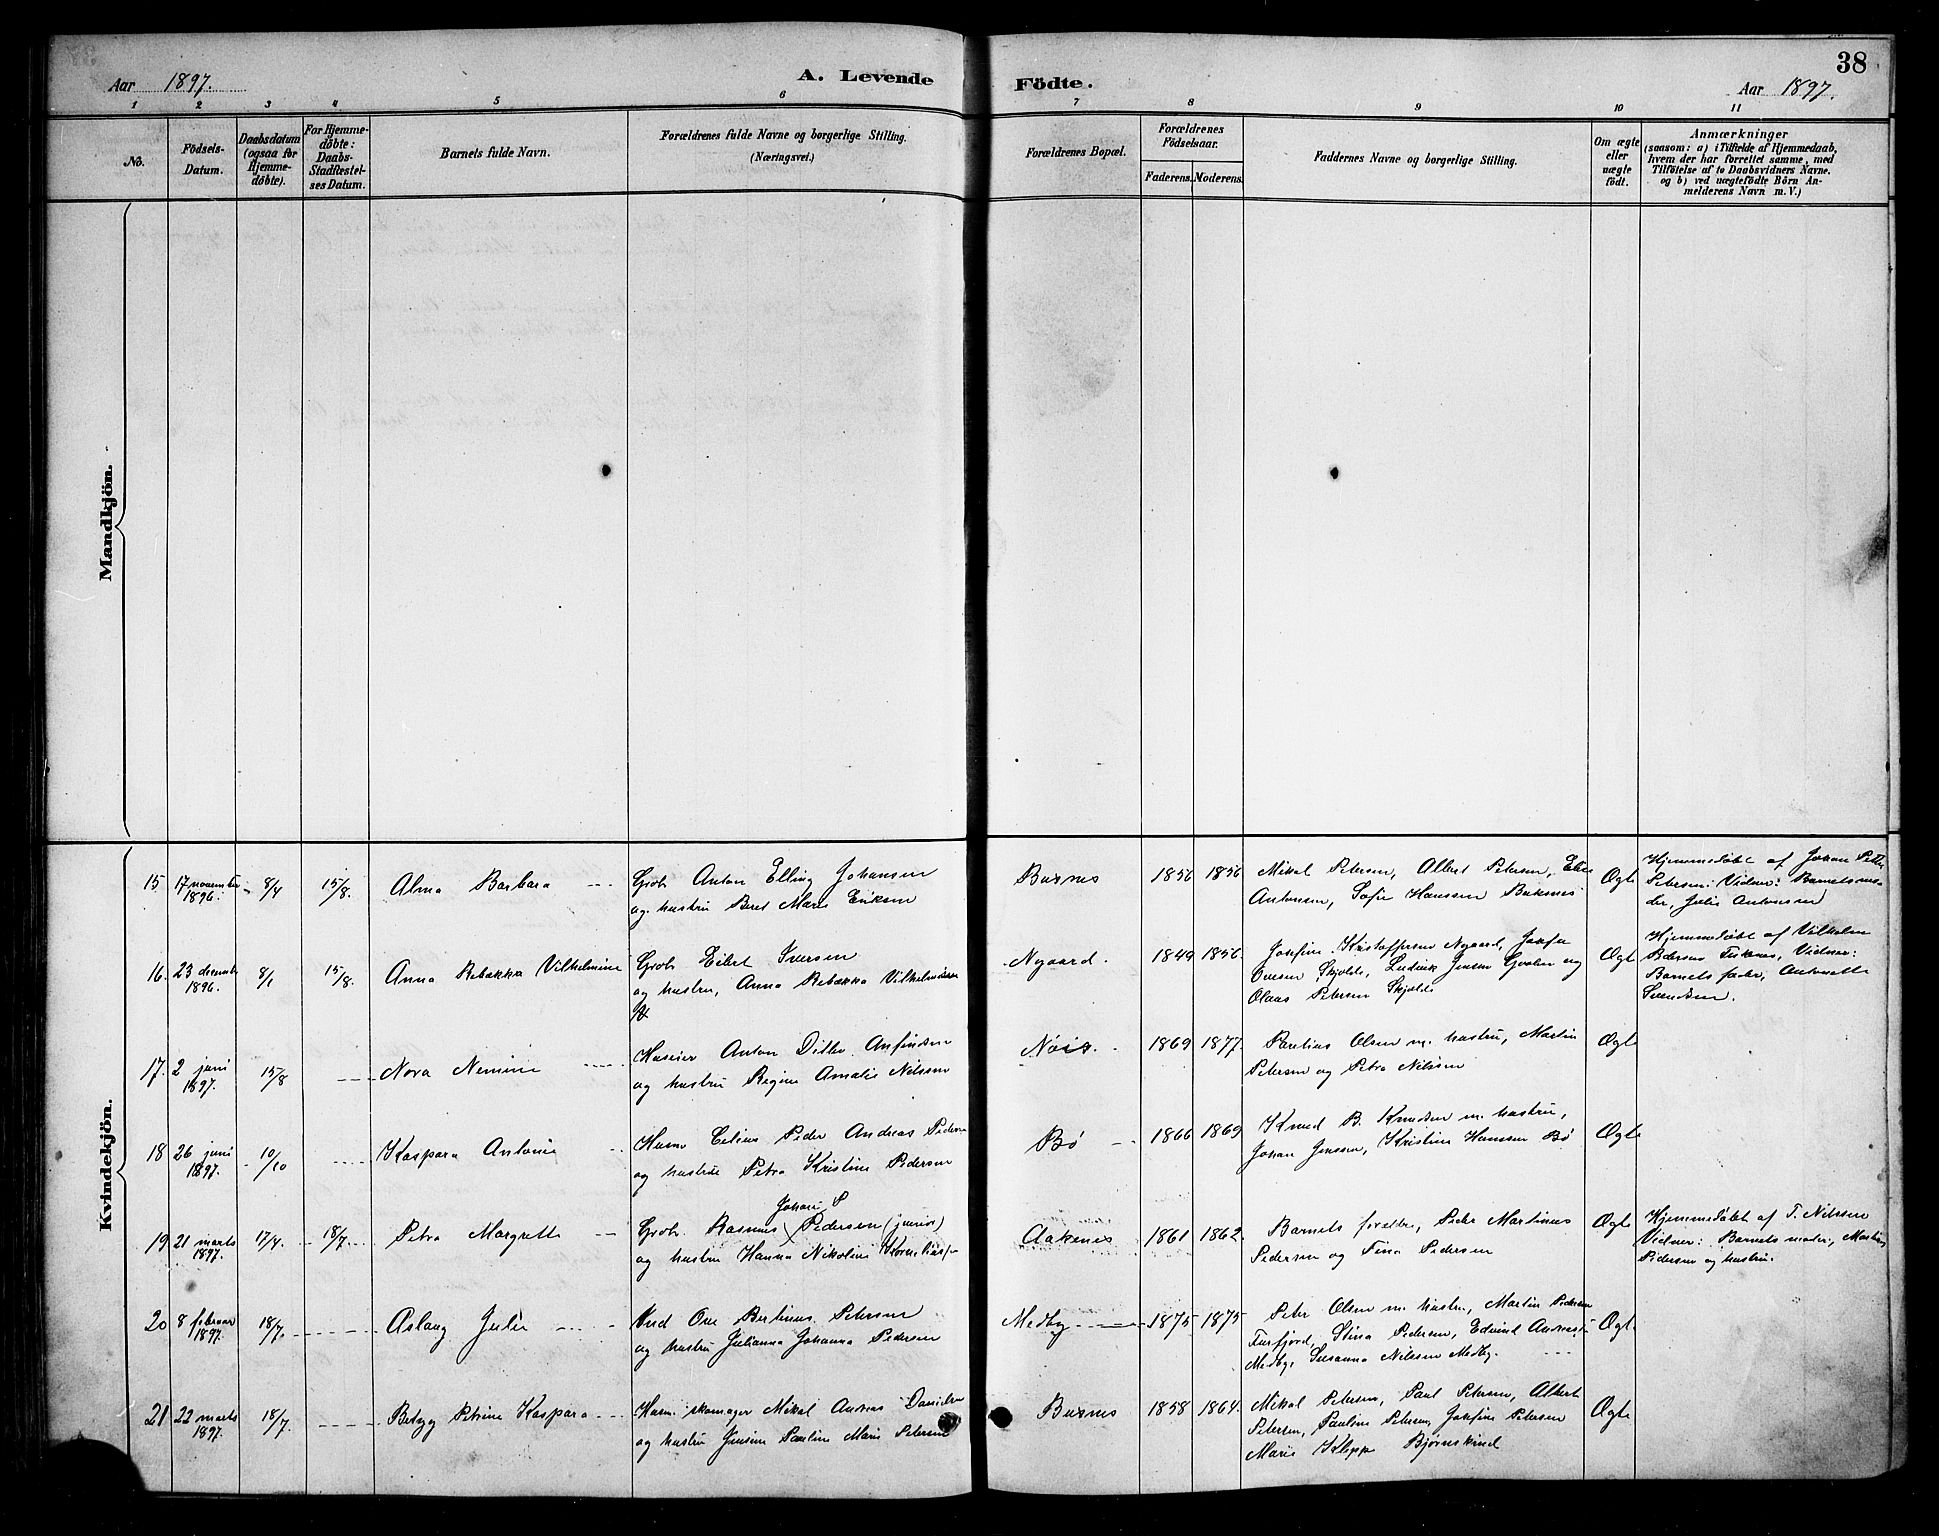 38
Aar 1897.
A. Levende Fødte.
Aar 1897.
1 2 3 4 5 6 7 8 9 10 11
No.
Fødsels-Datum.
Daabsdatum (ogsaa for Hjemmedøbte).
For Hjemmedøbte: Daabs-Stadfæstelses Datum.
Barnets fulde Navn.
Forældrenes fulde Navne og borgerlige Stilling.
(Næringsvei.)
Forældrenes Bopæl.
Forældrenes Fødselsaar.
Faderens. Moderens.
Faddernes Navne og borgerlige Stilling.
Om ægte eller uægte født.
Anmærkninger
(saasom: a) i Tilfælde af Hjemmedaab,
hvem der har forrettet samme, med
Tilføielse af to Daabsvidners Navne.
og b) ved uægtefødte Børn Anmelderens Navn m. V.)
Mandkjön.
Kvindekjön.
15 17 november 1896. 8/4 15/8. Alma Barbara
Grbr Anton Elling Johansen
og hustru Beret Marie Eriksen
Buxnes 1856 1856
Mikal Petersen, Albert Petersen,
Antonsen, Sofie Hanssen Buknes
Ægte
Hjemmedøbt af Johan
Petersen: Vidner: Barnets moder, Julie Antonsen
16. 23 december 1896. 8/1 15/8. Anna Rebækka Vilhelmine
Grbr Eilert Iversen
og hustru, Anna Rebækka
Nygaard. 1849 1856.
Josefine Kristoffersen Nygaard, Josefine
Iversen Skjolde, Ludvik Jensen og
Olaus Petersen Skjolde
Ægte
Hjemmedøbt af Vilhelm
Vidner:
Barnets fader, Antonette
Svendsen.
17. 2 juni 1897. 15/8 Nora Nemine
Huseier Anton Ditlev Anfindsen
og hustru Regine Amalie Nilssen
Nöis. 1869 1877.
Paretius Olsen m. hustru, Martin
Petersen og Petra Nilssen
Ægte
18 26 juni 1897. 10/10 Kaspara Antonie
Husm Peder Andreas Pedersen
og hustru Petra Kristine Pedersen
Bø 1866 1869
Knud B. Knudsen m. hustru,
Johan Jenssen, Kristine Hanssen Bø
Ægte
19 21 marts 1897. 17/4. 18/7 Petra Margrette
Johan P
Grbr. Rasmus Pedersen (junior)
og hustru Hanna Nikoline
Aakenes 1861 1862.
Barnets forældre, Peder Martinus
Pedersen og Fina Pedersen
Ægte
Hjemmedøbt af T. Nilssen
Vidner: Barnets moder, Martin
Pedersen og hustru.
20 8 februar 1897. 18/7. Aslaug Julie
Ove Bertinus Petersen
og hustru Julianna Johanna Pedersen
Medby 1875 1875
Peter Olsen m. hustru, Martin Pedersen
Stina Pedersen, Edvind
Medby, Susanna Nilssen Medby.
Ægte.
21 22 marts 1897. 18/7. Betzy Petrine Kaspara
Husm skomager Mikal Andreas Danielsen
og hustru Jensine Pauline Marie Petersen
Buxnes 1858 1864.
Mikal Petersen, Paul Petersen, Albert
Petersen, Pauline Petersen, Josefine Petersen
Marie Kleppe Bjørnskind
Ægte